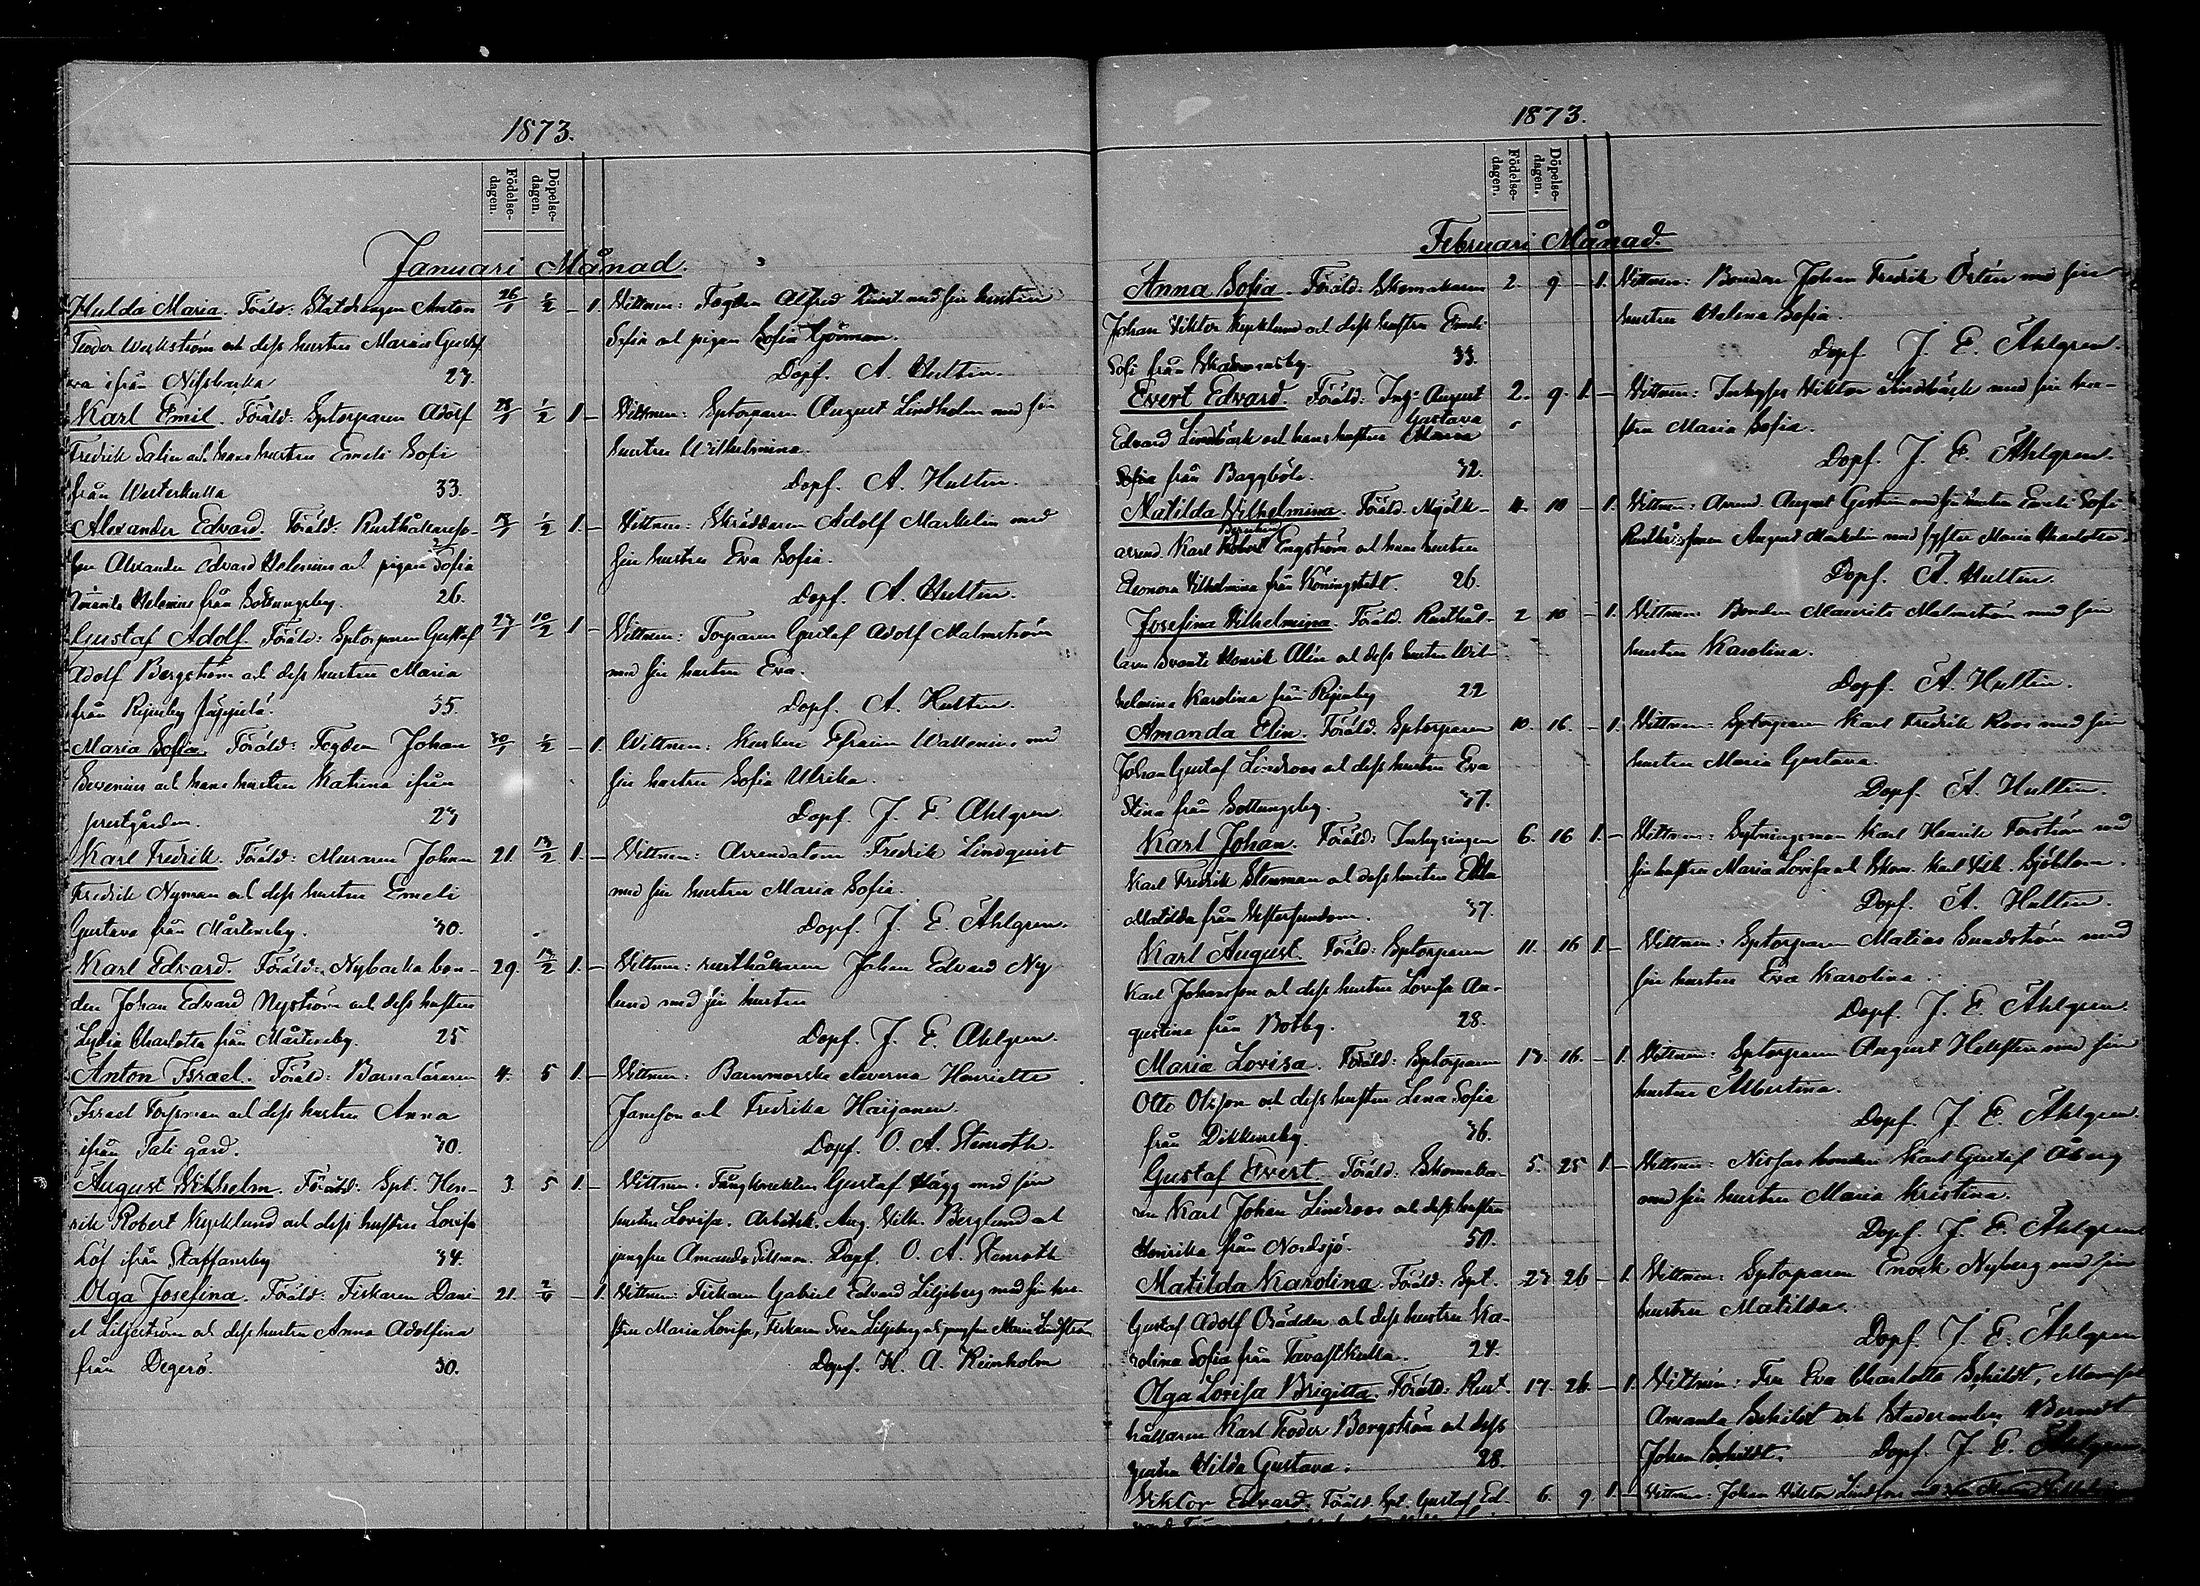 1873.
Födelse-
dagen.
Döpelse-
dagen.
Januari Månad.
Hulda Maria. Föräld: Statdrängen Anton 26/1 2/2 – 1. Vittnen: Fogden Alfred med sin hustru
Teodor Weckström och dess hustru Maria Gusta- Sofia och pigan Sofia
va ifrån Nissbacka 23. Döpf. A. Hultin.
Karl Emil. Föräld: Sptorparen Adolf 1/2 1 – Vittnen: Sptorparen August Lindholm med sin
Fredrik Salin och hans hustru Emeli Sofi hustru Wilhelmina.
från Westerkulla 33. Döpf. A. Hultin.
Alexander Edvard. Föräld: Rusthållareso- 1/2 1. – Vittnen: Skräddaren Adolf Markelin med
nen Alexander Edvard Helenius och pigan Sofia sin hustru Eva Sofia.
Helenius från Sottungsby. 26. Döpf. A. Hultin.
Gustaf Adolf. Föräld: Sptorparen Gustaf 27/1 10/2 1 – Vittnen: Torparen Gustaf Adolf Malmström
Adolf Bergström och dess hustru Maria med sin hustru Eva.
från Rejnby 35. Döpf. A. Hultin.
Maria Sofia. Föräld: Fogden Johan 30/1 2/2 – 1. Vittnen: Efraim Wallenius med
Sevenius och hans hustru Katrina ifrån sin hustru Sofia Ulrika.
prestgården. 23 Döpf. J. E. Ahlgren.
Karl Fredrik. Föräld: Muraren Johan 21. 13/2 1. – Vittnen: Arrendatorn Fredrik Lindquist
Fredrik Nyman och dess hustru Emeli med sin hustru Maria Sofia.
Gustava från Mårtensby. 30. Döpf. J. E. Åhlgren.
Karl Edvard. Föräld: Nybacka bon- 29. 13/2 1. – Vittnen: rusthållaren Johan Edvard Ny
den Johan Edvard Nyström och dess hustru lund med sin hustru
Lydia Charlotta från Mårtensby. 25 Döpf. J. E. Ahlgren.
Anton Israel. Föräld: Barnaläraren 4. 5 1. – Vittnen: Barnmorske eleverna Henriette
Israel Forsman och dess hustru Anna Jansson och Fredrika Haijanen.
ifrån Tali gård. 30. Döpf. O. A. Stenroth.
August Wilhelm. Föräld: Spt. Hen- 3 5 1. – Vittnen: Gustaf Hägg med sin
rik Robert Kycklund och dess hustru Lovisa hustru Lovisa. Arbetsk. Aug. Vilh. Berglund och
Löf ifrån Staffansby 34. jungfru Amanda Döpf. O. A. Stenroth
Olga Josefina. Föräld: Fiskaren Dani- 21. – 1. Vittnen: Fiskaren Gabriel Edvard Liljeberg med sin hu-
el Liljeström och dess hustru Anna Adolfina stru Maria Lovisa, Fiskaren Sven Liljeberg och jungfru Maria Lindström
från Degerö. 30. Döpf. K. A. Reinholm
1873.
Födelse-
dagen.
Döpelse-
dagen.
Februari Månad.
Anna Sofia. Föräld: Skomakaren 2. 9 – 1. Vittnen: Bonden Johan Fredrik Östén med sin
Johan Viktor Kycklund och dess hustru Emeli hustru Helena Sofia.
Sofi från 33. Döpf J. E. Åhlgren.
Evert Edvard. Föräld: Inh. August 2. 9. 1. – Vittnen: Inhyses Viktor Lindbäck med sin hu-
Gustava
Edvard Lindbäck och hans hustru Maria stru Maria Sofia.
Sofia från Baggböle. 32. Döpf. J. E. Åhlgren.
Matilda Vilhelmina. Föräld. Mjölk- 4. 10 – 1. Vittnen: Arrend. August med sin hustru Emeli Sofi
arrend. Karl Robert Engström och hans hustru Rusth: August Markelin med syster Maria Charlotta.
Eleonora Vilhelmina från Köningstedt. 26. Döpf. A. Hultin.
Josefina Vilhelmina. Föräld. Rusthål- 2 10 – 1. Vittnen: Bonden Maurits Malmström med sin
laren Svante Henrik Alén och dess hustru Wil- hustru Karolina.
helmina Karolina från Rejnby 22 Döpf. A. Hultin.
Amanda Elin. Föräld. Sptorparen 10. 16. – 1. Vittnen: Sptorparen Karl Fredrik Roos med sin
Johan Gustaf Lindroos och dess hustru Eva hustru Maria Gustava.
Stina från Sottungsby. 37. Döpf. A. Hultin.
Karl Johan. Föräld: Inhysingen 6. 16 1. – Vittnen: Sytningsman Karl Henrik Forström med
Karl Fredrik Stenman och dess hustru Edla sin hustru Maria Lovisa och Skom. Karl Vilh. Sjöblom.
Matilda från Vestersundom. 37. Döpf. A. Hultin.
Karl August. Föräld: Sptorparen 11. 16 1. – Vittnen: Sptorparen Matias Sundström med
Karl Johansson och dess hustru Lovisa Au- sin hustru Eva Karolina.
gustina från Botby. 28. Döpf. J. E. Åhlgren.
Maria Lovisa. Föräld: Sptorparen 13. 16. – 1. Vittnen: Sptorparen August Hellsten med sin
Otto Olsson och dess hustru Lena Sofia hustru Albertina.
från Dikkursby. 36. Döpf. J. E. Åhlgren.
Gustaf Evert. Föräld: Skomaka- 5. 25 1. – Vittnen: Nissas bonden Karl Gustaf Åberg
ren Karl Johan Lindroos och dess hustru med sin hustru Maria Kristina.
Henrika från Nordsjö. 50. Döpf. J. E. Åhlgren
Matilda Karolina. Föräld: Spt. 23. 26 – 1. Vittnen: Sptorparen Enock Nyberg med sin
Gustaf Adolf Grädden och dess hustru Ka- hustru Matilda.
rolina Sofia från Tavastkulla. 24. Döpf. J. E. Åhlgren
Olga Lovisa Brigitta. Föräld: Rust- 17. 26. – 1. Vittnen: Fru Eva Charlotta Schildt, Mamsell
hållaren Karl Teodor Borgström och dess Amanda Schildt och Studeranden Berndt
hustru Hilda Gustava. 28. Johan Schildt. Döpf. J. E. Åhlgren
Viktor Edvard. Föräld. Spt. Gustaf Ed- 6. 9 1. – Vittnen: Johan Viktor Lindfors